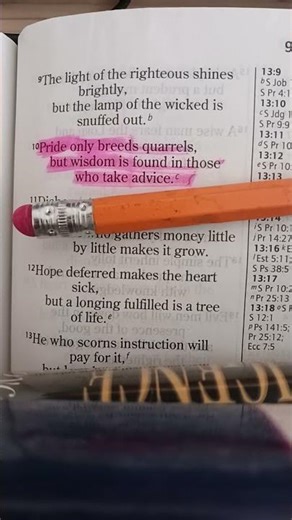 ⁹The light of the righteous shines
brightly,
but the lamp of the wicked is
snuffed out.ᵇ
¹⁰Pride only breeds quarrels,
but wisdom is found in those
who take advice.ᶜ
gathers money little
by little makes it grow.
¹²Hope deferred makes the heart
sick,
but a longing fulfilled is a tree
of life.ᵉ
¹³He who scorns instruction will
pay for it,ᶠ
13:9
ᵇS Job
S Pr 4:1
13:10
ᶜS Jdg 1
S Pr 9:9
13:11
ᵈS Pr 10
13:12
ᵉS Pr 10:
13:13
13:14
ⁱS Pr 10:1
ʲPr 14:27
13:16 ᵏE
ˡEst 5:11;
S Ps 38:5
13:17
ᵐS Pr 10:2
ⁿPr 25:13
13:18 ᵒS
S 12:1
ᵖPs 141:5;
Pr 25:12;
Ecc 7:5